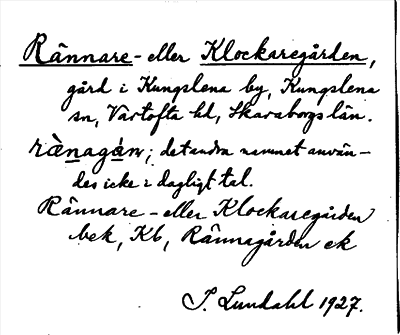 Rännare- eller Klockaregården,
gård i Kungslena by, Kungslena
sn, Vartofta hd, Skaraborgs län.
rä̀nagán; det andra namnet använ-
des icke i dagligt tal.
Rännare- eller Klockaregården
bek, Kb, Rännagården ek
I. Lundahl 1927.